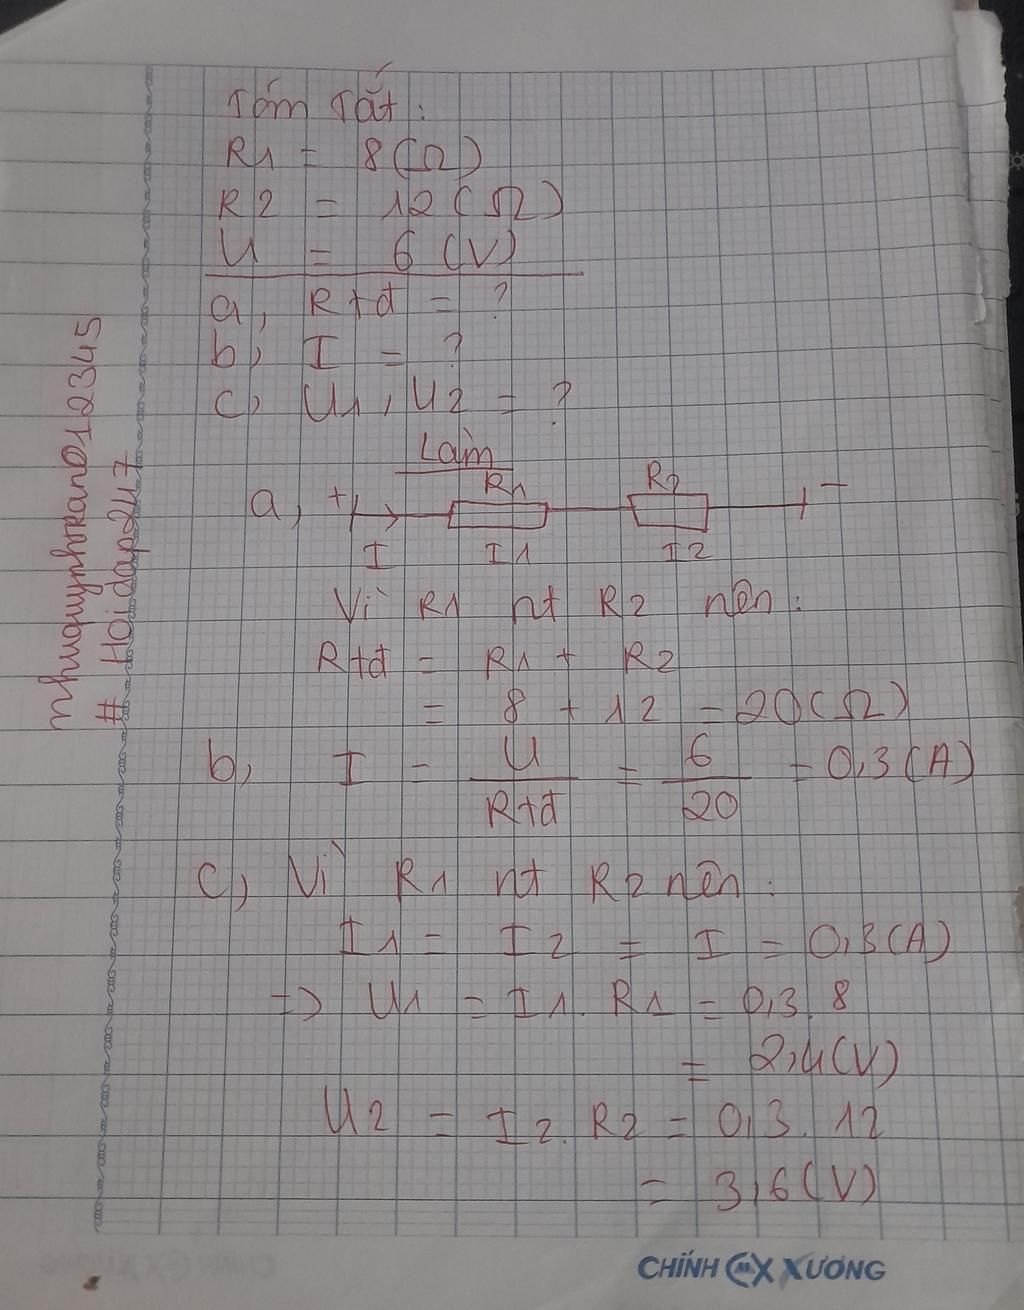 Tóm Tắt:
R1 = 8(Ω)
R2 = 12(Ω)
U = 6(V)
a, Rtđ = ?
b, I = ?
c, U1, U2 = ?
Làm
a, + R1 R2 -
I I1 I2
Vì R1 nt R2 nên:
Rtđ = R1 + R2
= 8 + 12 = 20(Ω)
b, I = U/Rtđ = 6/20 = 0,3(A)
c, Vì R1 nt R2 nên:
I1 = I2 = I = 0,3(A)
=> U1 = I1. R1 = 0,3. 8
= 2,4(V)
U2 = I2. R2 = 0,3. 12
= 3,6(V)
nhuquynhokano12345
# Hoidap247
CHÍNH XƯƠNG